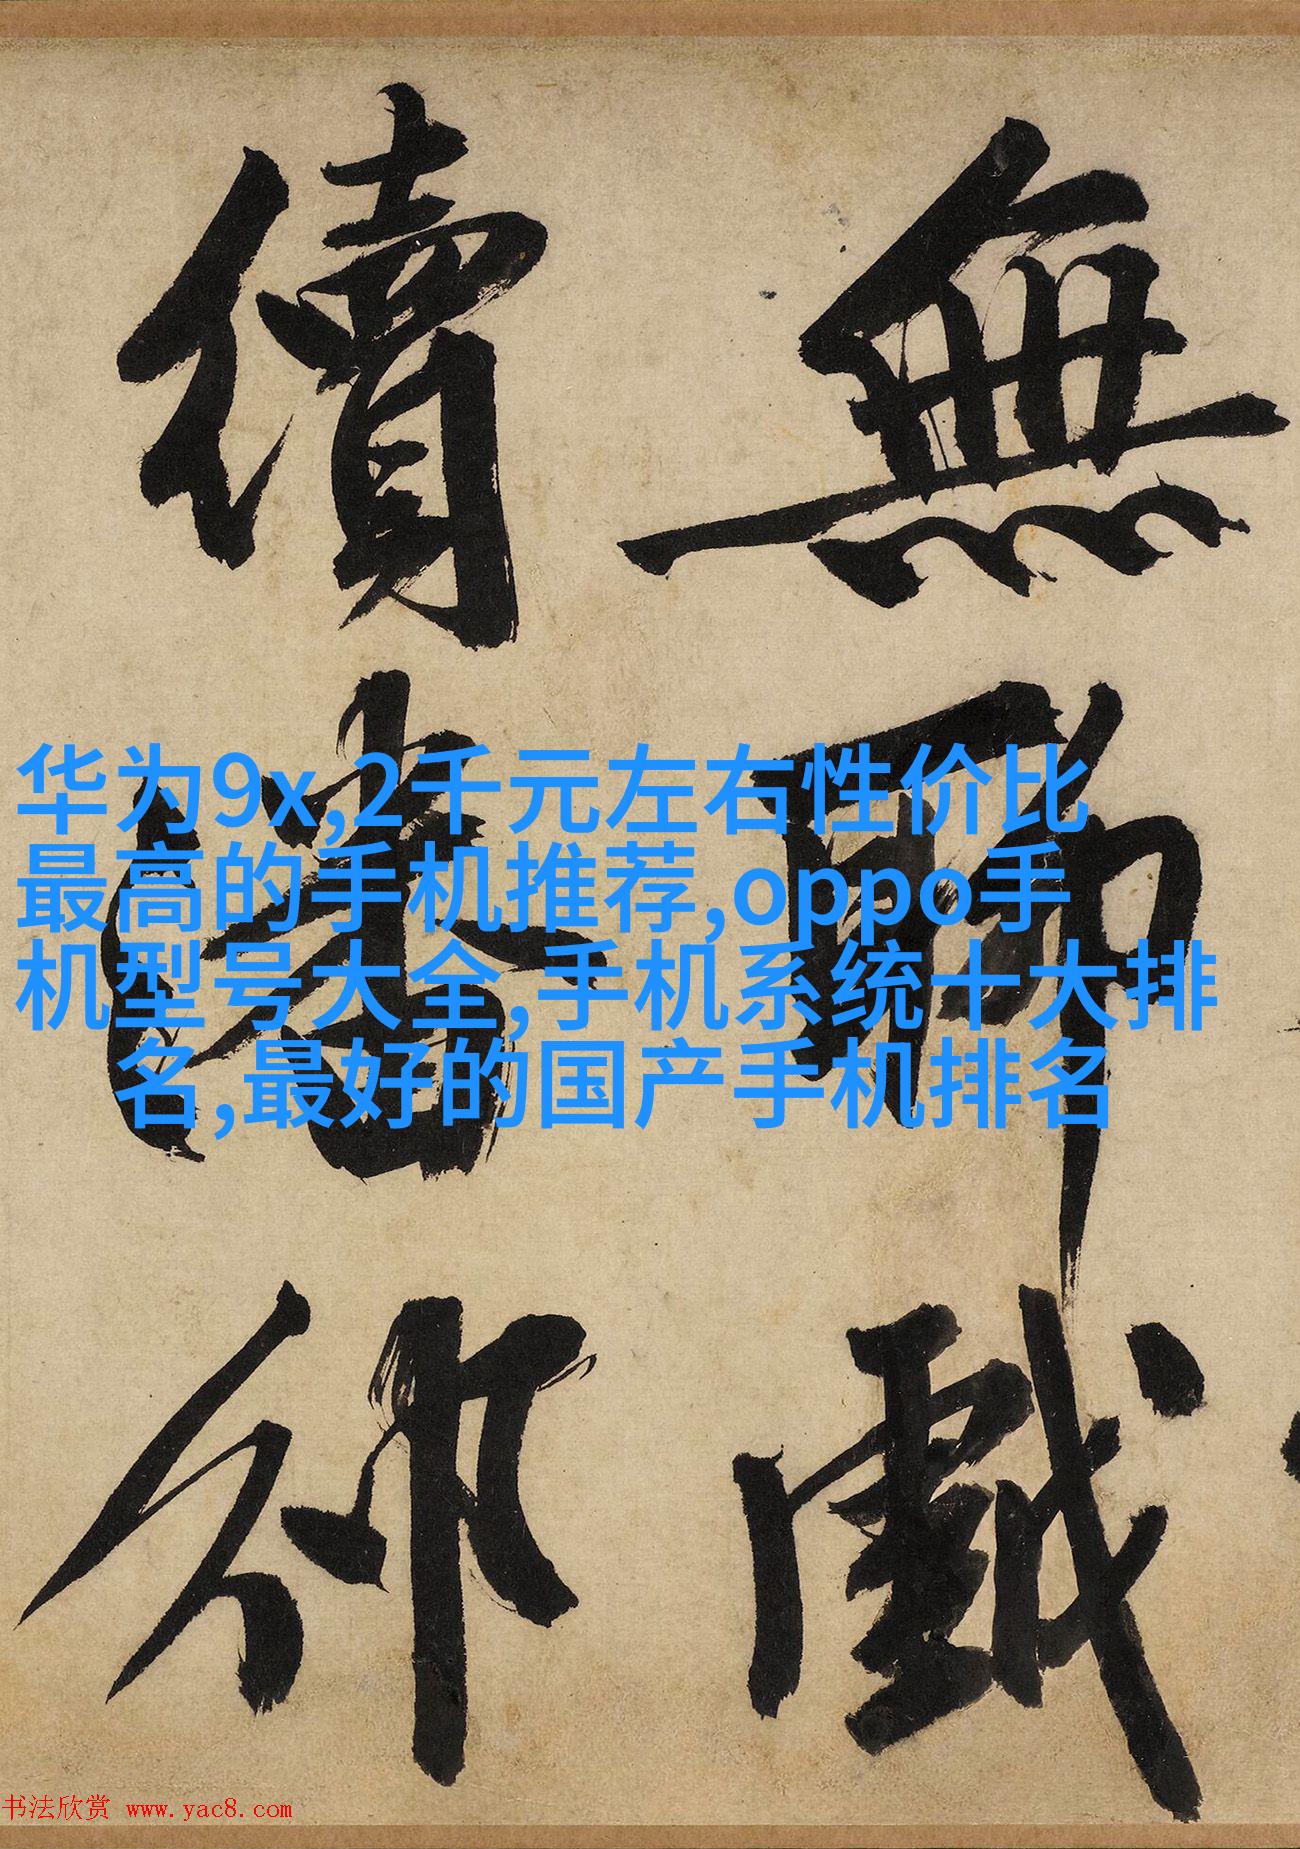 無聊戲
續潘邠
华为9x,2千元左右性价比
最高的手机推荐,oppo手
机型号大全,手机系统十大排
名,最好的国产手机排名
书法欣赏 www.yac8.com